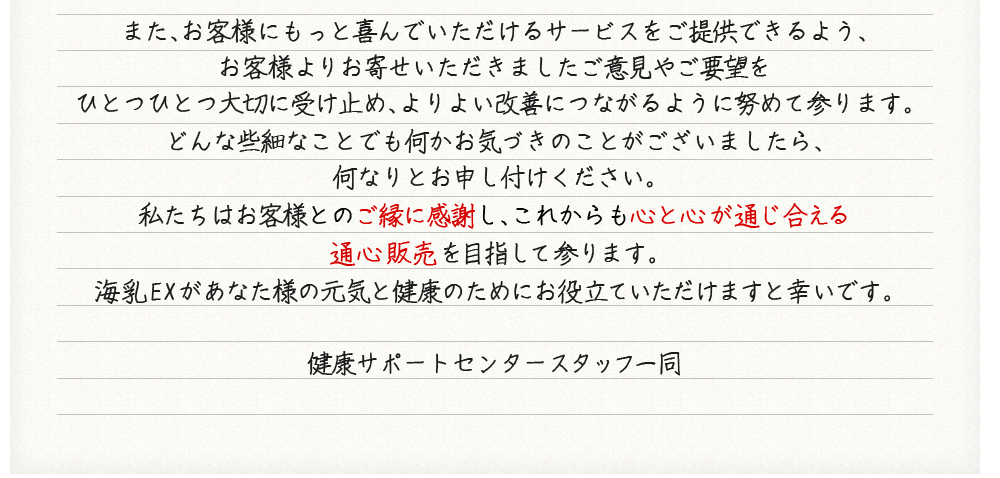 また、お客様にもっと喜んでいただけるサービスをご提供できるよう、
お客様よりお寄せいただきましたご意見やご要望を
ひとつひとつ大切に受け止め、よりよい改善につながるように努めて参ります。
どんな些細なことでも何かお気づきのことがございましたら、
何なりとお申し付けください。
私たちはお客様とのご縁に感謝し、これからも心と心が通じ合える
通心販売を目指して参ります。
海乳EXがあなた様の元気と健康のためにお役立ていただけますと幸いです。
健康サポートセンタースタッフ一同